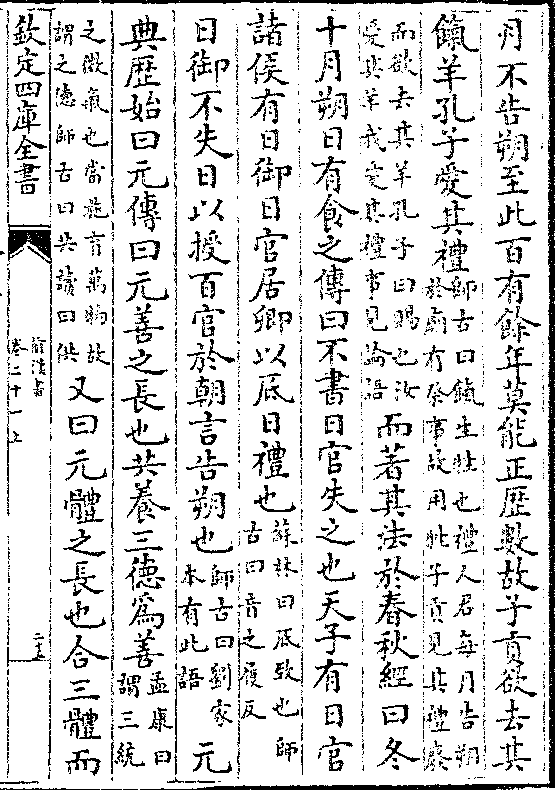 月不告朔至此百有餘年莫能正歴數故子貢欲去其
餼羊孔子愛其禮師古曰餼生牲也禮人君每月告朔於廟有祭事故用牲子貢見其禮廢
而欲去其羊孔子曰賜也汝愛其羊我愛其禮事見論語而著其法於春秋經曰冬
十月朔日有食之傳曰不書日官失之也天子有日官
諸侯有日御日官居卿以厎日禮也蘇林曰厎致也師古曰音之履反
日御不失日以授百官於朝言告朔也師古曰劉家本有此語元
典歴始曰元傳曰元善之長也共養三德為善孟康曰謂三統
之微氣也當施育萬物故謂之德師古曰共讀曰供又曰元體之長也合三體而
欽定四庫全書
前漢書
卷二十一上
二十五